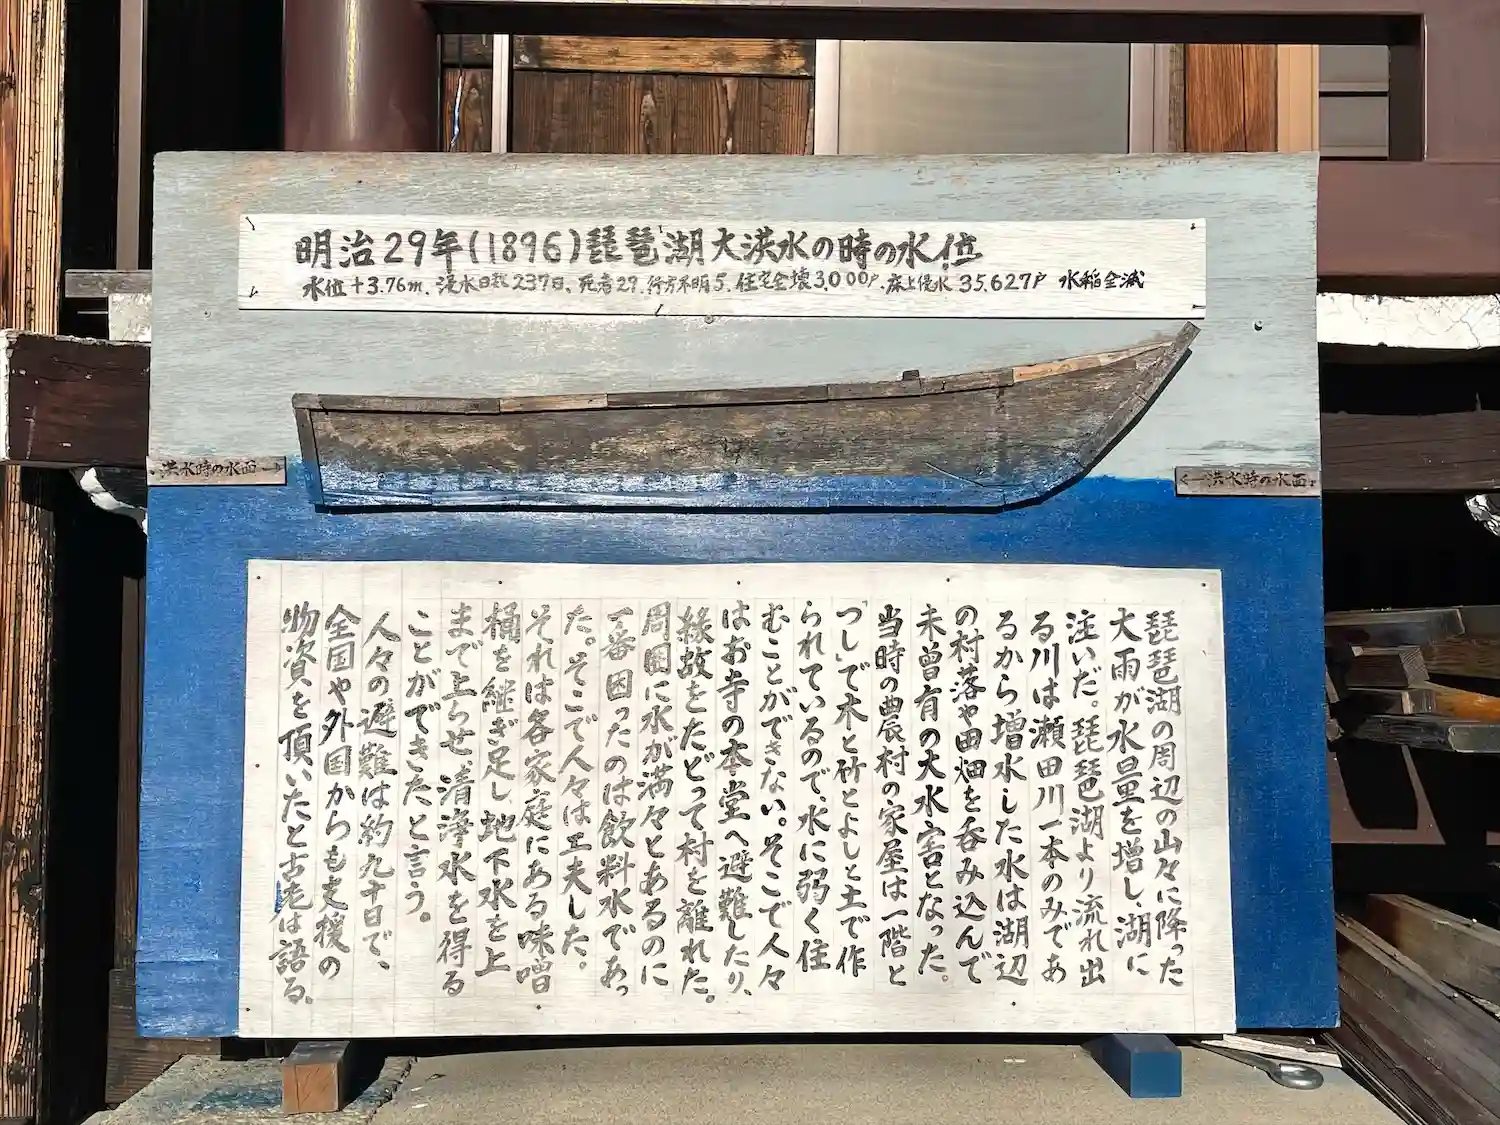 明治29年(1896)琵琶湖大洪水の時の水位
水位+3.76m、浸水日数237日、死者29、行方不明5、住宅全壊3,000戸、床上侵水、35,627戸 水稲全滅
洪水時の水面→
←洪水時の水面
琵琶湖の周辺の山々に降った
大雨が水量を増し、湖に
注いだ。琵琶湖より流れ出
る川は瀬田川一本のみであ
るから増水した水は湖辺
の村落や田畑を呑み込んで
未曾有の大水害となった。
当時の農村の家屋は一階と
「つし」で木と竹とよしと土で作
られているので、水に弱く住
むことができない。そこで人々
はお寺の本堂へ避難したり、
縁故をたどって村を離れた。
周囲に水が満々とあるのに
一番困ったのは飲料水であっ
た。そこで人々は工夫した。
それは各家庭にある味噌
桶を継ぎ足し、地下水を上
まで上らせ、清浄水を得る
ことができたと言う。
人々の避難は約九十日で、
全国や外国からも支援の
物資を頂いたと古老は語る、